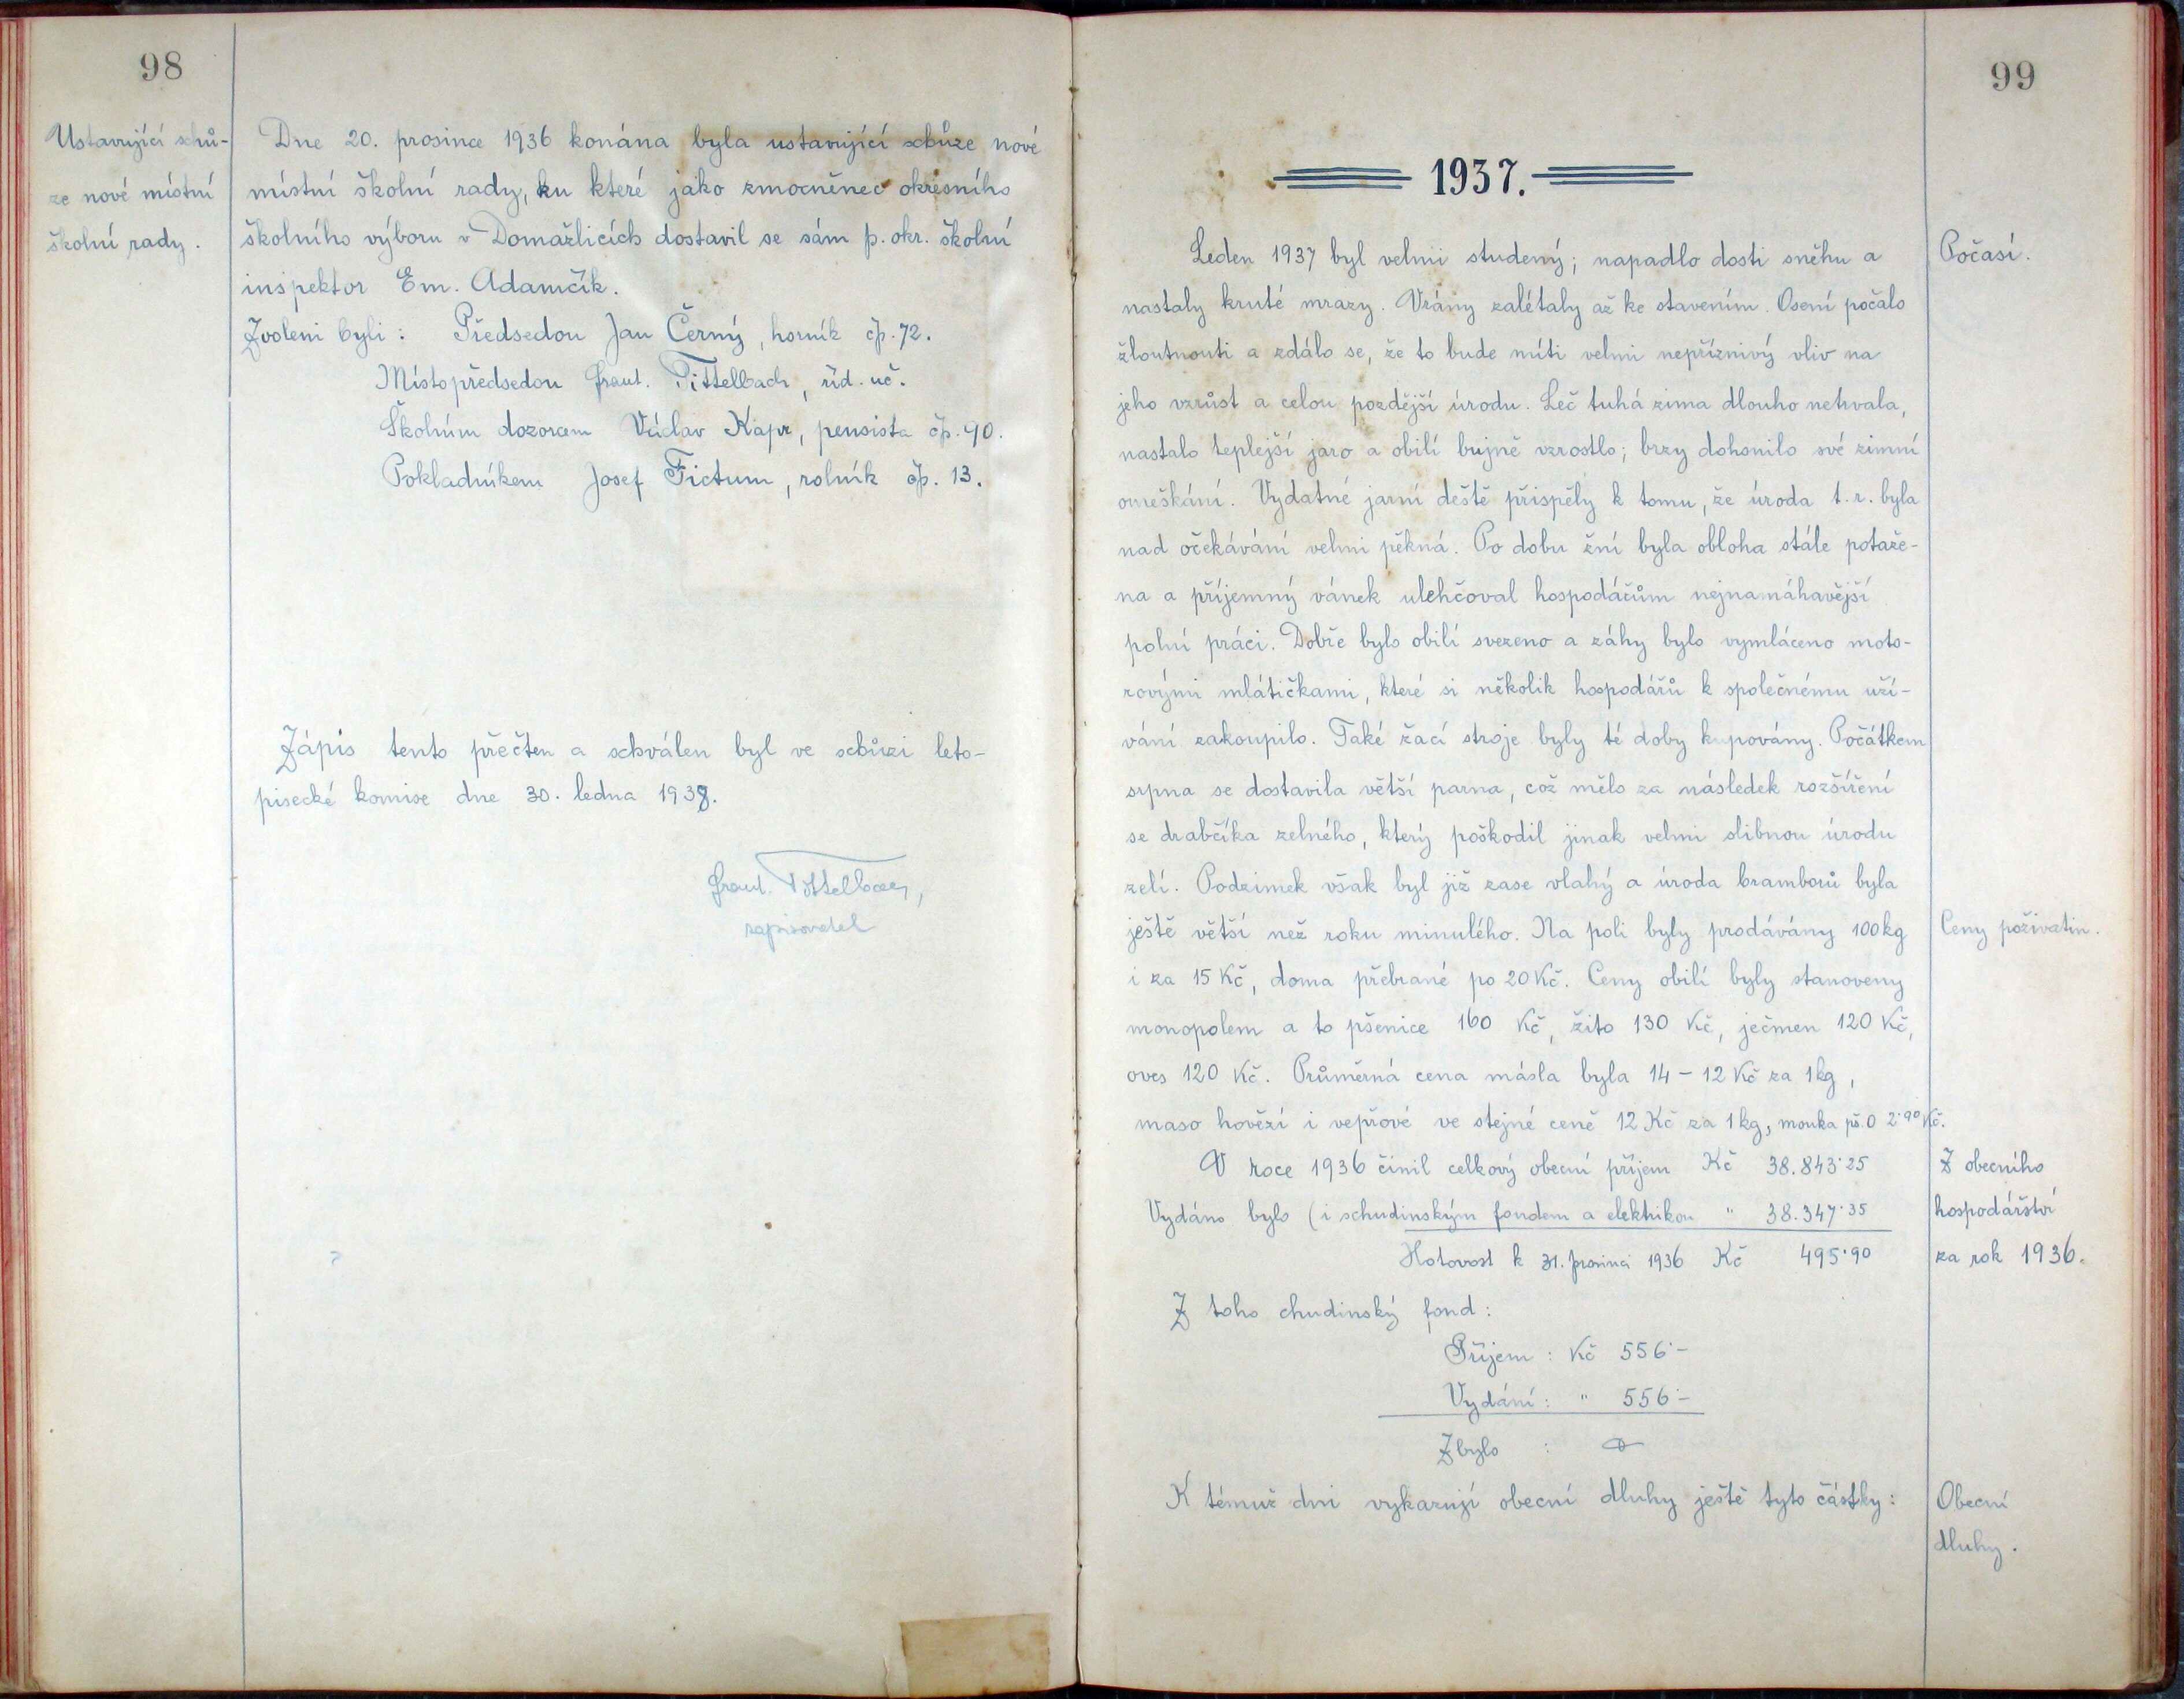 98
Ustavující schů-
ze nové místní
školní rady.
Dne 20. prosince 1936 konána byla ustavující schůze nové
místní školní rady, ku které jako zmocněnec okresního
školního výboru v Domažlicích dostavil se sám p. okr. školní
inspektor Em. Adamčík.
Zvoleni byli: Předsedou Jan Černý, horník čp. 72.
Místopředsedou Frant. Tittelbach, říd. uč.
Školním dozorcem Václav Kapr, pensista čp. 90.
Pokladníkem Josef Fictum, rolník čp. 13.
Zápis tento přečten a schválen byl ve schůzi leto-
pisecké komise dne 30. ledna 1938.
Frant. Tittelbach,
zapisovatel
99
1937.
Leden 1937 byl velmi studený; napadlo dosti sněhu a
nastaly kruté mrazy. Vrány zalétaly až ke stavením. Osení počalo
žloutnouti a zdálo se, že to bude míti velmi nepříznivý vliv na
jeho vzrůst a celou pozdější úrodu. Leč tuhá zima dlouho netrvala,
nastalo teplejší jaro a obilí bujně vzrostlo; brzy dohonilo své zimní
omeškání. Vydatné jarní deště přispěly k tomu, že úroda t. r. byla
nad očekávání velmi pěkná. Po dobu žní byla obloha stále potaže-
na a příjemný vánek ulehčoval hospodářům nejnamáhavější
polní práci. Dobře bylo obilí svezeno a záhy bylo vymláceno moto-
rovými mlátičkami, které si několik hospodářů k společnému uží-
vání zakoupilo. Také žací stroje byly té doby kupovány. Počátkem
srpna se dostavila větší parna, což mělo za následek rozšíření
se drabčíka zelného, který poškodil jinak velmi slibnou úrodu
zelí. Podzimek však byl již zase vlahý a úroda bramborů byla
ještě větší než roku minulého. Na poli byly prodávány 100 kg
i za 15 Kč, doma přebrané po 20 Kč. Ceny obilí byly stanoveny
monopolem a to pšenice 160 Kč, žito 130 Kč, ječmen 120 Kč,
oves 120 Kč. Průměrná cena másla byla 14 - 12 Kč za 1 kg,
maso hovězí i vepřové ve stejné ceně 12 Kč za 1 kg, mouka pš. 0 2·90 Kč.
V roce 1936 činil celkový obecní příjem Kč 38.843·25
Vydáno bylo (i schudinským fondem a elektrikou " 38.347·35
Hotovost k 31. prosinci 1936 Kč 495·90
Z toho chudinský fond:
Příjem: Kč 556·-
Vydání: " 556·-
Zbylo : 0
K témuž dni vykazují obecní dluhy ještě tyto částky:
Počasí.
Ceny poživatin.
Z obecního
hospodářství
za rok 1936.
Obecní
dluhy.